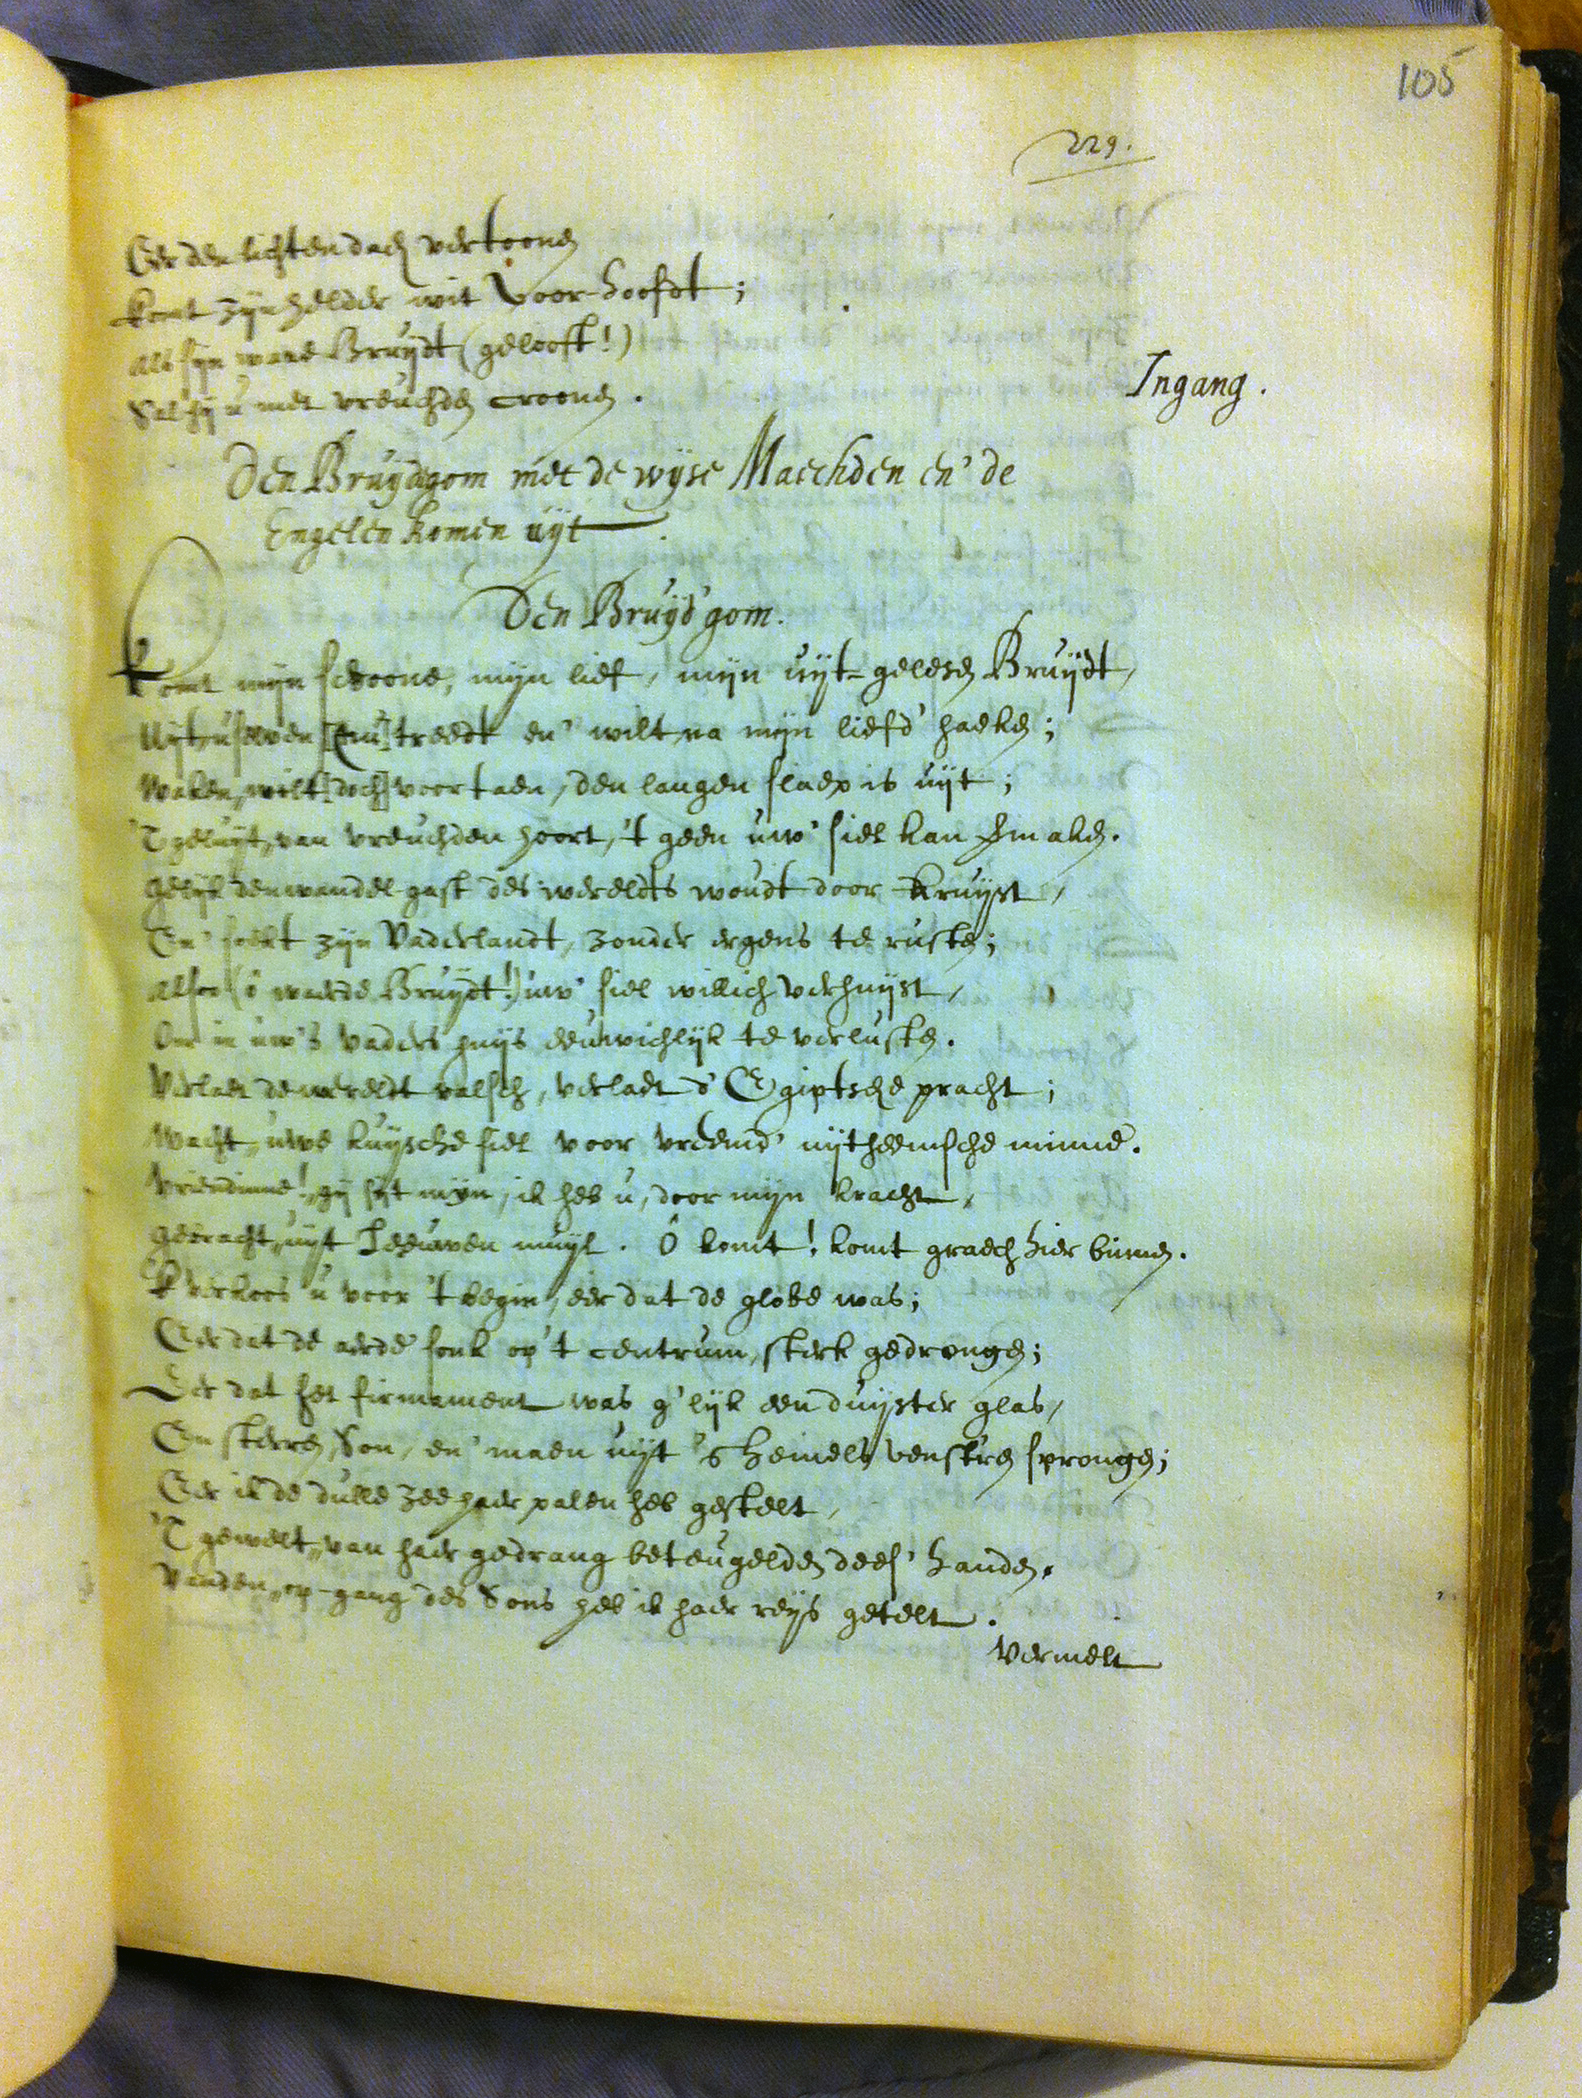 105
229.
Eer den lichten dach vertoonen
komt zyn helder wit voor-hooft;
Als syn ware Bruydt (gelooft!)
Sal hy u met vreuchden croonen.
Ingang.
Den Bruydgom met de wyse Maechden en' de
Engelen komen uyt.
Den Bruyd'gom.
Komt mijn schoone, mijn lief, mijn uyt-gelesen Bruydt,
Uyt u selven [nu] treedt en' wilt na mijn liefd' haeken;
Waken, wilt [doch] voortaen, den langen slaep is uyt;
'T geluyt, van vreuchden hoort, 't geen uw' siel kan smaken.
Gelyk den wandel-gast des werelds woudt door kruyst,
En' soekt zyn Vaderlandt, zonder ergens te rusten;
Alsoo (ô waerde Bruydt!) uw' siel willich verhuyst,
Om in uw's vaders huys eeuwichlyk te verlusten.
Verlaet de wereldt valsch, verlaet d'Egiptsche pracht;
Wacht, uwe kuysche siel voor vreemd' uytheemsche minne.
Vriendinne! gy syt mijn, ik heb u, door mijn kracht,
Gebracht, uyt Leeuwen muyl. ô komt! komt graech hier binnen.
'K verkoos u voor 't begin, eer dat de globe was;
Eer dat de aerde sonk op 't centrum, sterk gedrongen;
Eer dat het firmament was g'lyk een duyster glas,
En sterren, Son, en' maen uyt 's hemels venst'ren sprongen;
Eer ik de dulle zee haer palen heb gestelt,
'T gewelt, van haer gedrang beteugelden dees' handen.
Van den op-gang des Sons heb ik haer reys getelt.
Vermelt